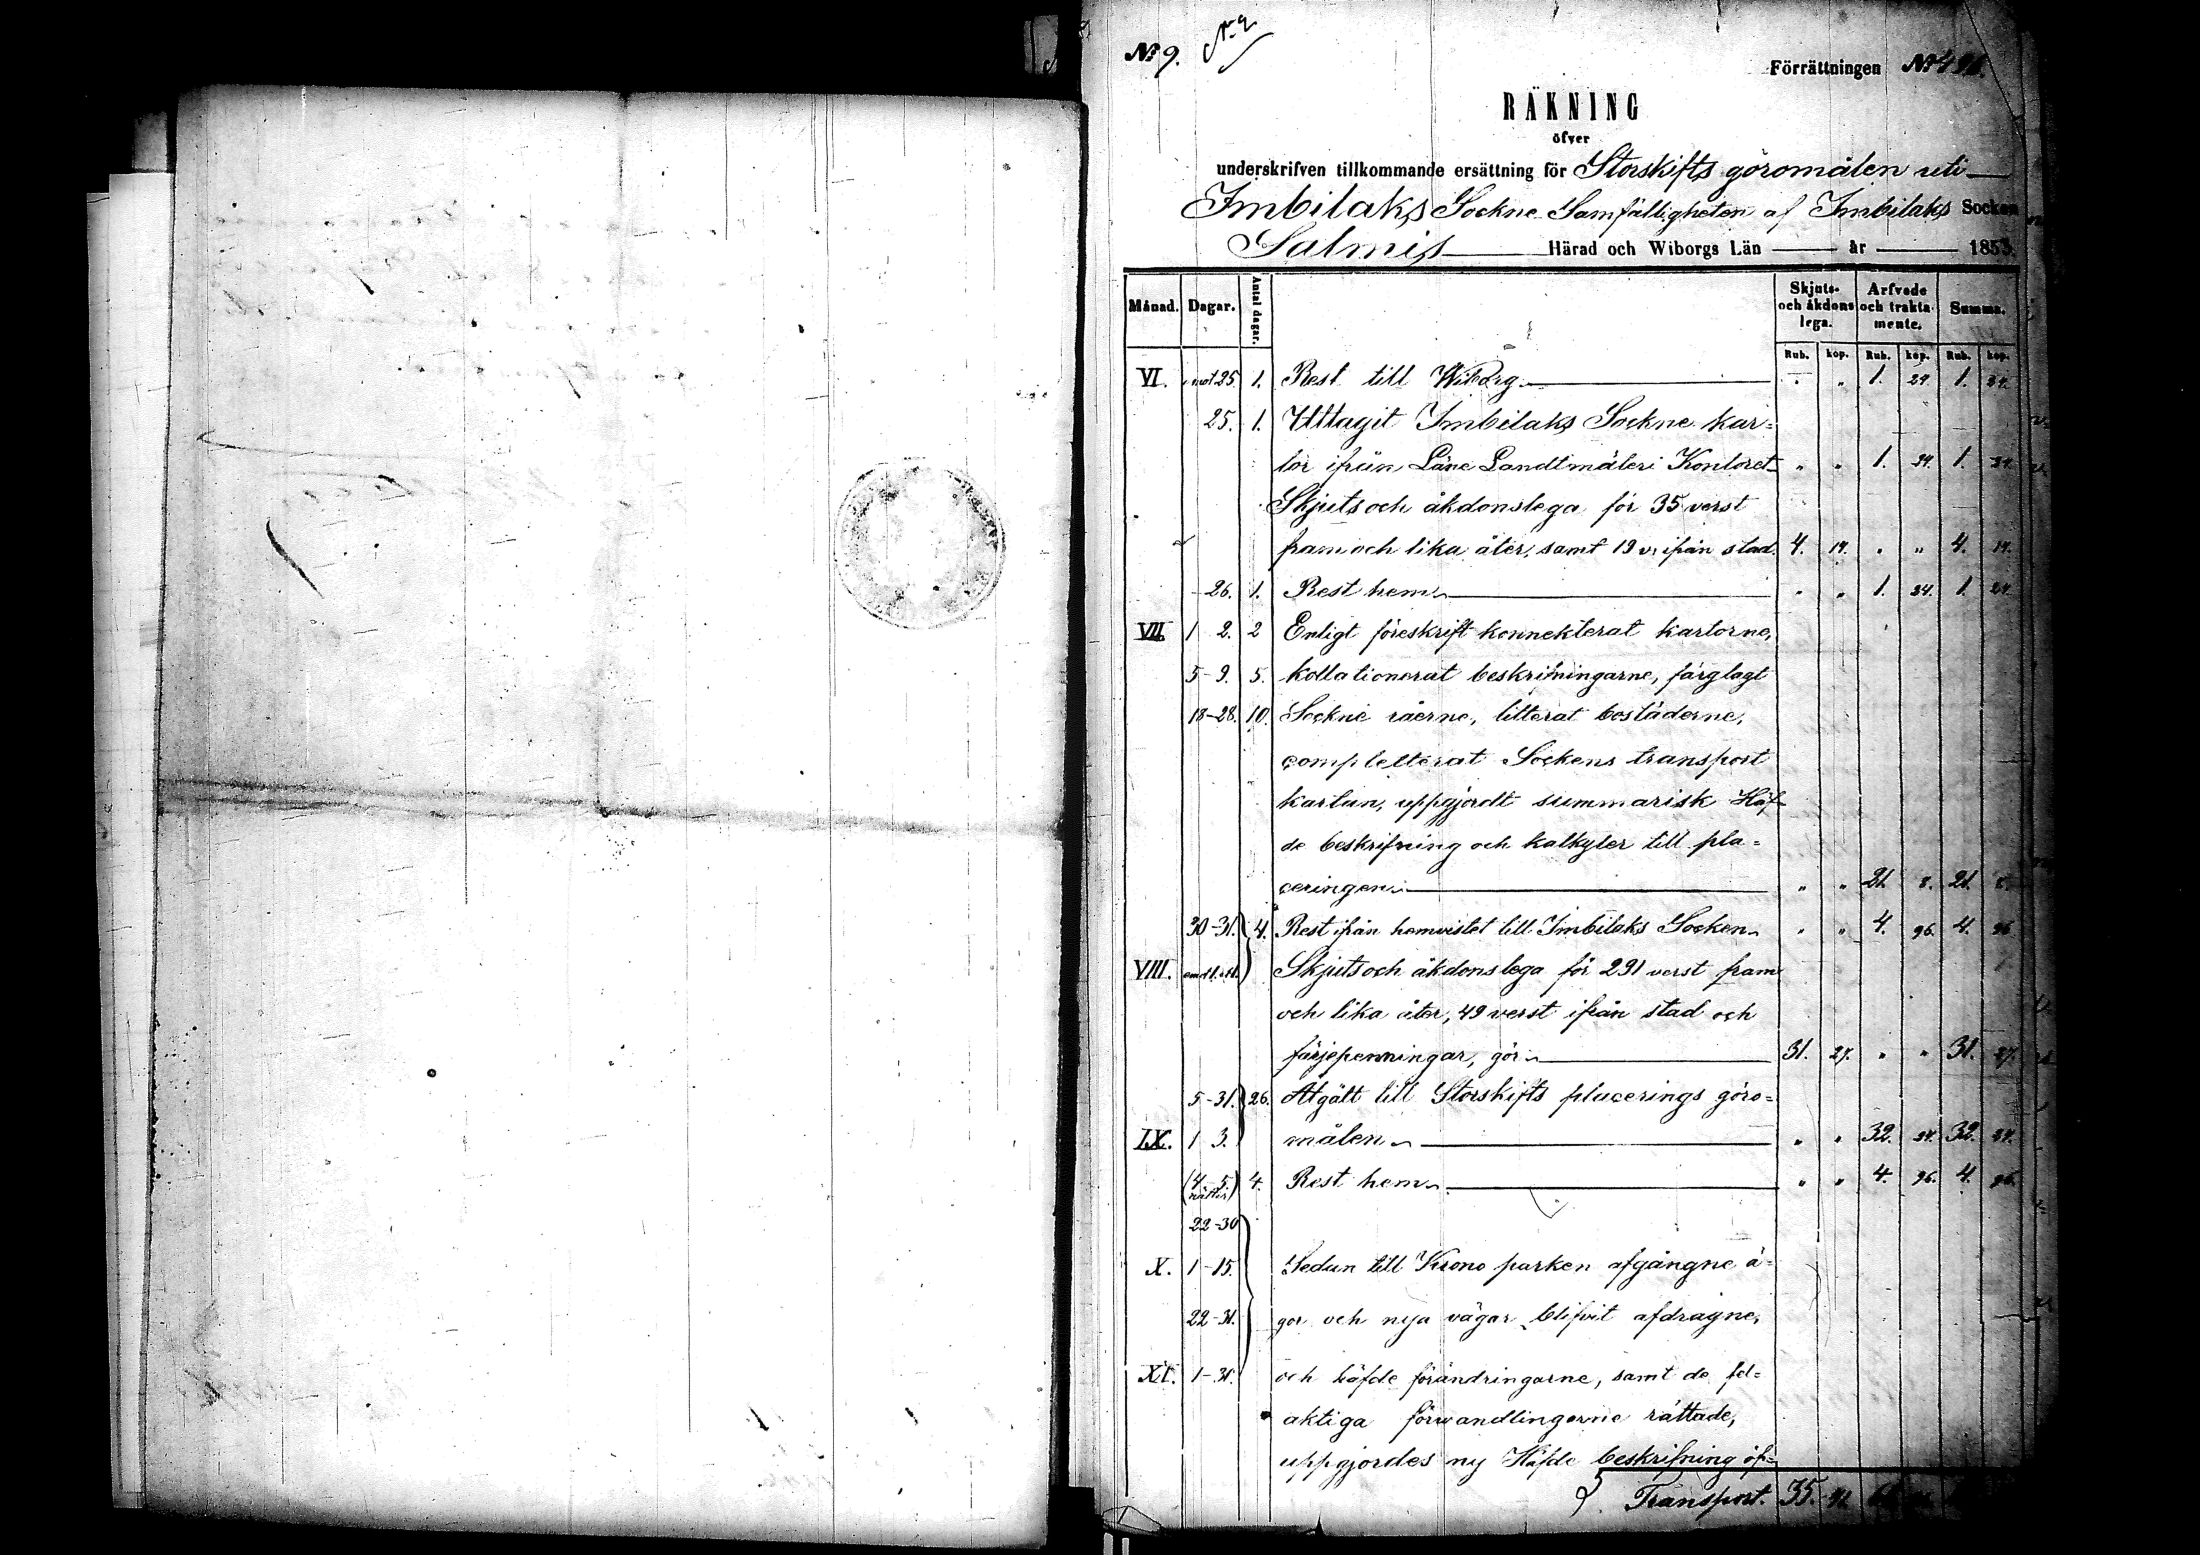 No 9. No 2
Förrättningen No
RÄKNING
öfver
underskrifven tillkommande ersättning för Storskifts göromålen uti
Imbilaks Sockne Samfälligheten af Imbilaks Socken
Salmis Härad och Wiborgs Län år 1855.
Månad. Dagar. Antal dagar. Skjuts- och åkdons lega. Arfvode och traktamente. Summa.
Rub. kop. Rub. kop. Rub. kop.
VI. mot 25. 1. Rest till Wiborg " " 1. 24. 1. 24.
25. 1. Uttagit Imbilaks Sockne kar=
tor ifrån Läne Landtmäteri Kontoret " " 1. 24. 1. 24.
Skjuts och åkdonslega för 35 verst
fram och lika åter, samt 19 v. ifrån stad. 4. 14. " " 4. 14.
26. 1. Rest hem " " 1. 24. 1. 24.
VII. 1 2. 2 Enligt föreskrift konnekterat kartorne,
5-9. 5. kollationerat beskrifningarne, färglagt
18-28. 10. Sockne råerne, litterat bostäderne,
completterat Sockens transport
kartan, uppgjordt summarisk Häf-
de beskrifning och kalkyler till pla=
ceringen " " 21. 8. 21. 8.
30-31. 4. Rest ifrån hemvistet till Imbilaks Socken " " 4. 96. 4. 96.
VIII. Skjuts och åkdons lega för 291 verst fram
och lika åter, 49 verst ifrån stad och
färjepenningar, gör 31. 27. " " 31. 27.
5-31. 26. Åtgått till Storskifts placerings göro=
IX. 1 3. målen " " 32. 24. 32. 24.
(4-5) 4. Rest hem " " 4. 96. 4. 96.
nätter
22-30
X. 1-15. Sedan till Krono parken afgångne ä=
22-31. gor och nya vägar blifvit afdragne,
XI. 1-31. och häfde förändringarne, samt de fel=
aktiga förwandlingarne rättade,
uppgjordes ny Häfde beskrifning öf=
Transport. 35. 41